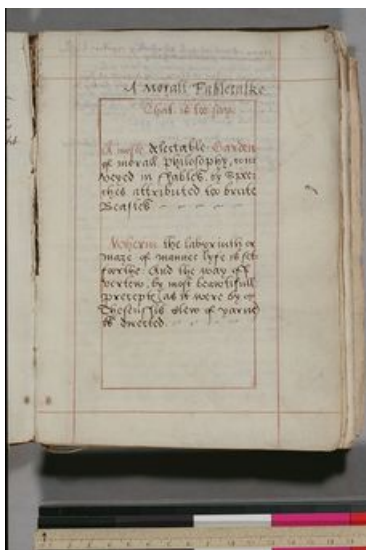 A Morall Fabletalke
That is too say.
A most delectable Garden
of morall Philosophy, con=
veyed in Fables, by Spee=
ches attributed too brute
Beastes
Wherin the labyrinth or
maze of mannes lyfe is set
foorthe: And the way of
vertew, by most beawtifull
precepts, as it were by
Theseus his clew of
is directed.